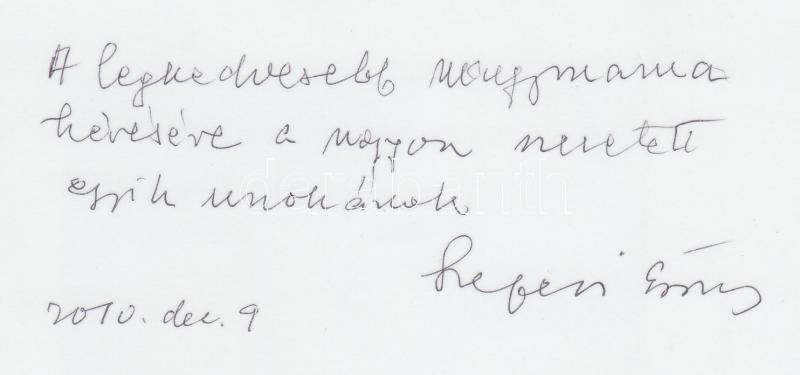 A legkedvesebb nagymama
kérésére a nagyon szeretett
egyik unokának
Szepesi György
2010. dec. 9
darabanth